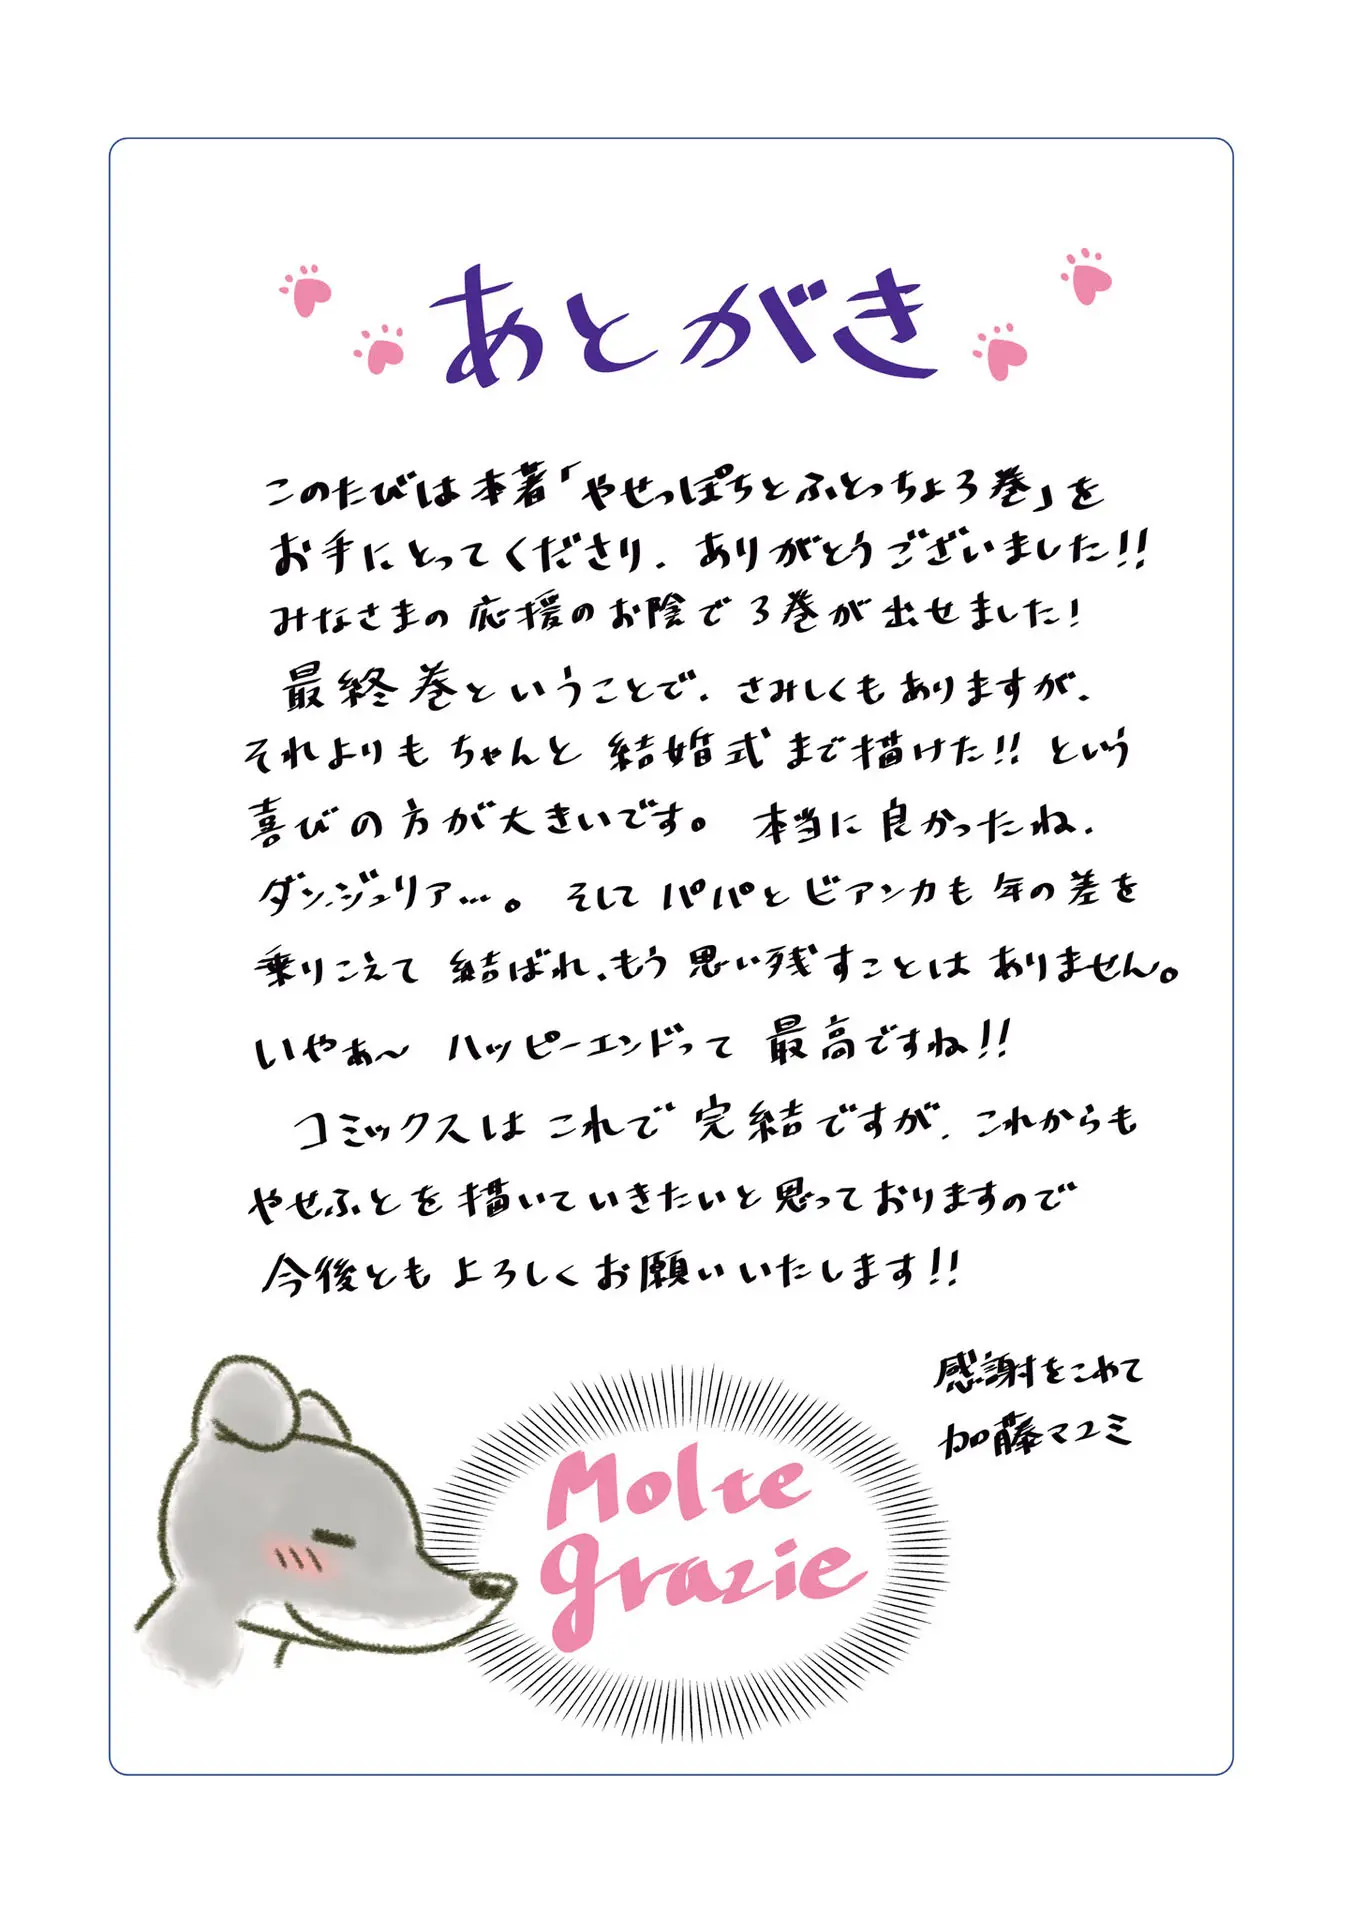 あとがき
このたびは本著「やせっぽちとふとっちょ3巻」を
お手にとってくださり、ありがとうございました!!
みなさまの応援のお陰で3巻が出せました!
最終巻ということで、さみしくもありますが、
それよりもちゃんと結婚式まで描けた!!という
喜びの方が大きいです。本当に良かったね、
ダン、ジュリア…。そしてパパとビアンカも年の差を
乗りこえて結ばれ、もう思い残すことはありません。
いやぁ〜ハッピーエンドって最高ですね!!
コミックスはこれで完結ですが、これからも
やせふとを描いていきたいと思っておりますので
今後ともよろしくお願いいたします!!
感謝をこめて
加藤マユミ
Molte
grazie